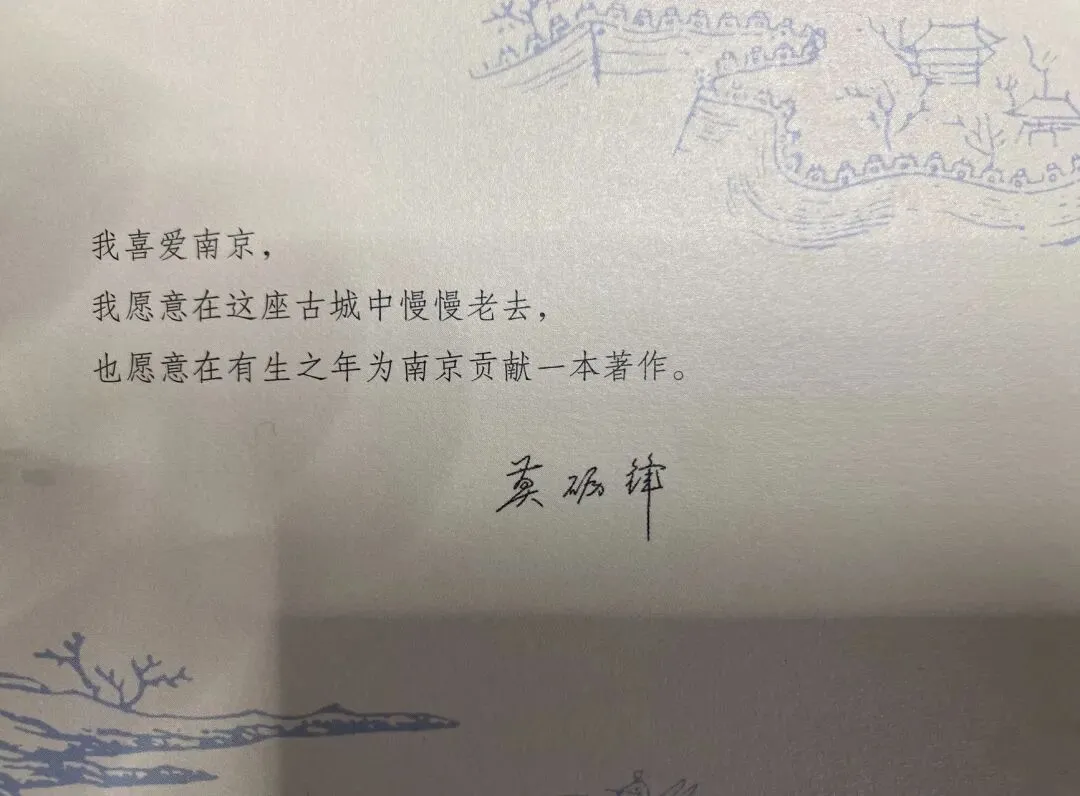 我喜爱南京，
我愿意在这座古城中慢慢老去，
也愿意在有生之年为南京贡献一本著作。
莫砺锋